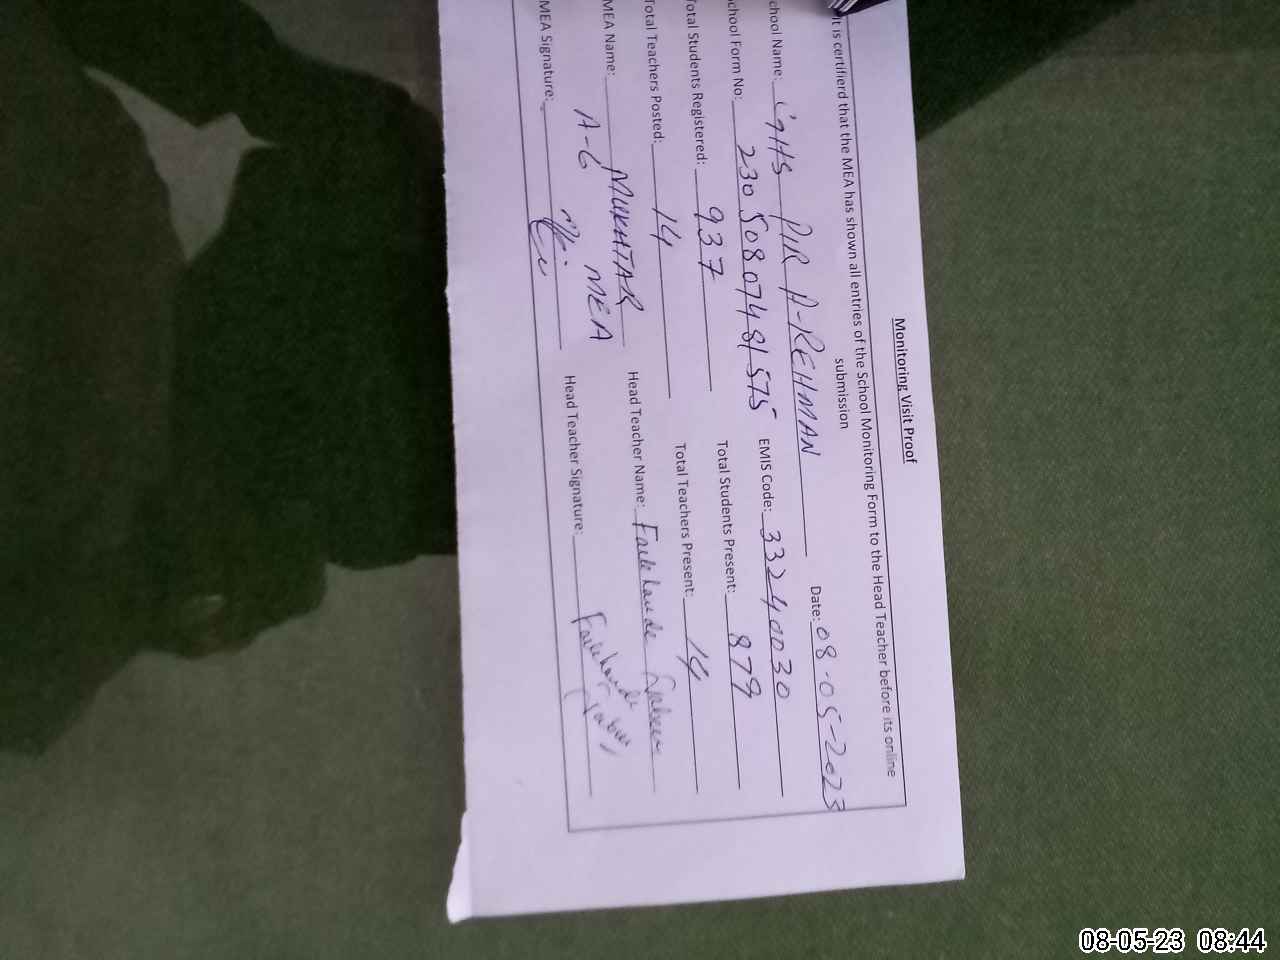 Monitoring Visit Proof
It is certifierd that the MEA has shown all entries of the School Monitoring Form to the Head Teacher before its online
submission
chool Name: GGHS PIR A-REHMAN Date: 08-05-2023
chool Form No: 23050807481575 EMIS Code: 33240030
otal Students Registered: 937 Total Students Present: 879
Total Teachers Posted: 14 Total Teachers Present: 14
MEA Name: MUKHTAR Head Teacher Name: Farkhande Jabeen
A-G MEA
MEA Signature: Head Teacher Signature: Farkhande Jabeen
08-05-23 08:44